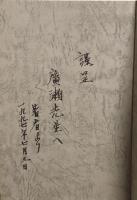 謹呈
廣瀬先生へ
著者より
一九九七年七月九日